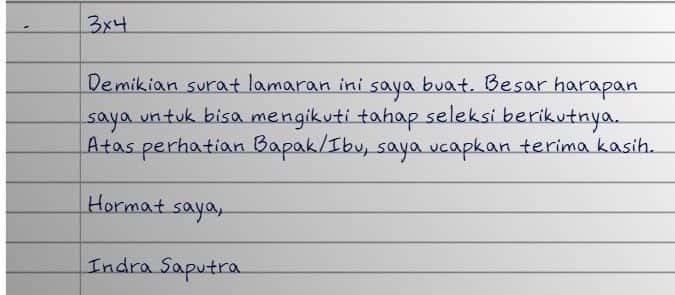 - 3x4
Demikian surat lamaran ini saya buat. Besar harapan
saya untuk bisa mengikuti tahap seleksi berikutnya.
Atas perhatian Bapak/Ibu, saya ucapkan terima kasih.
Hormat saya,
Indra Saputra